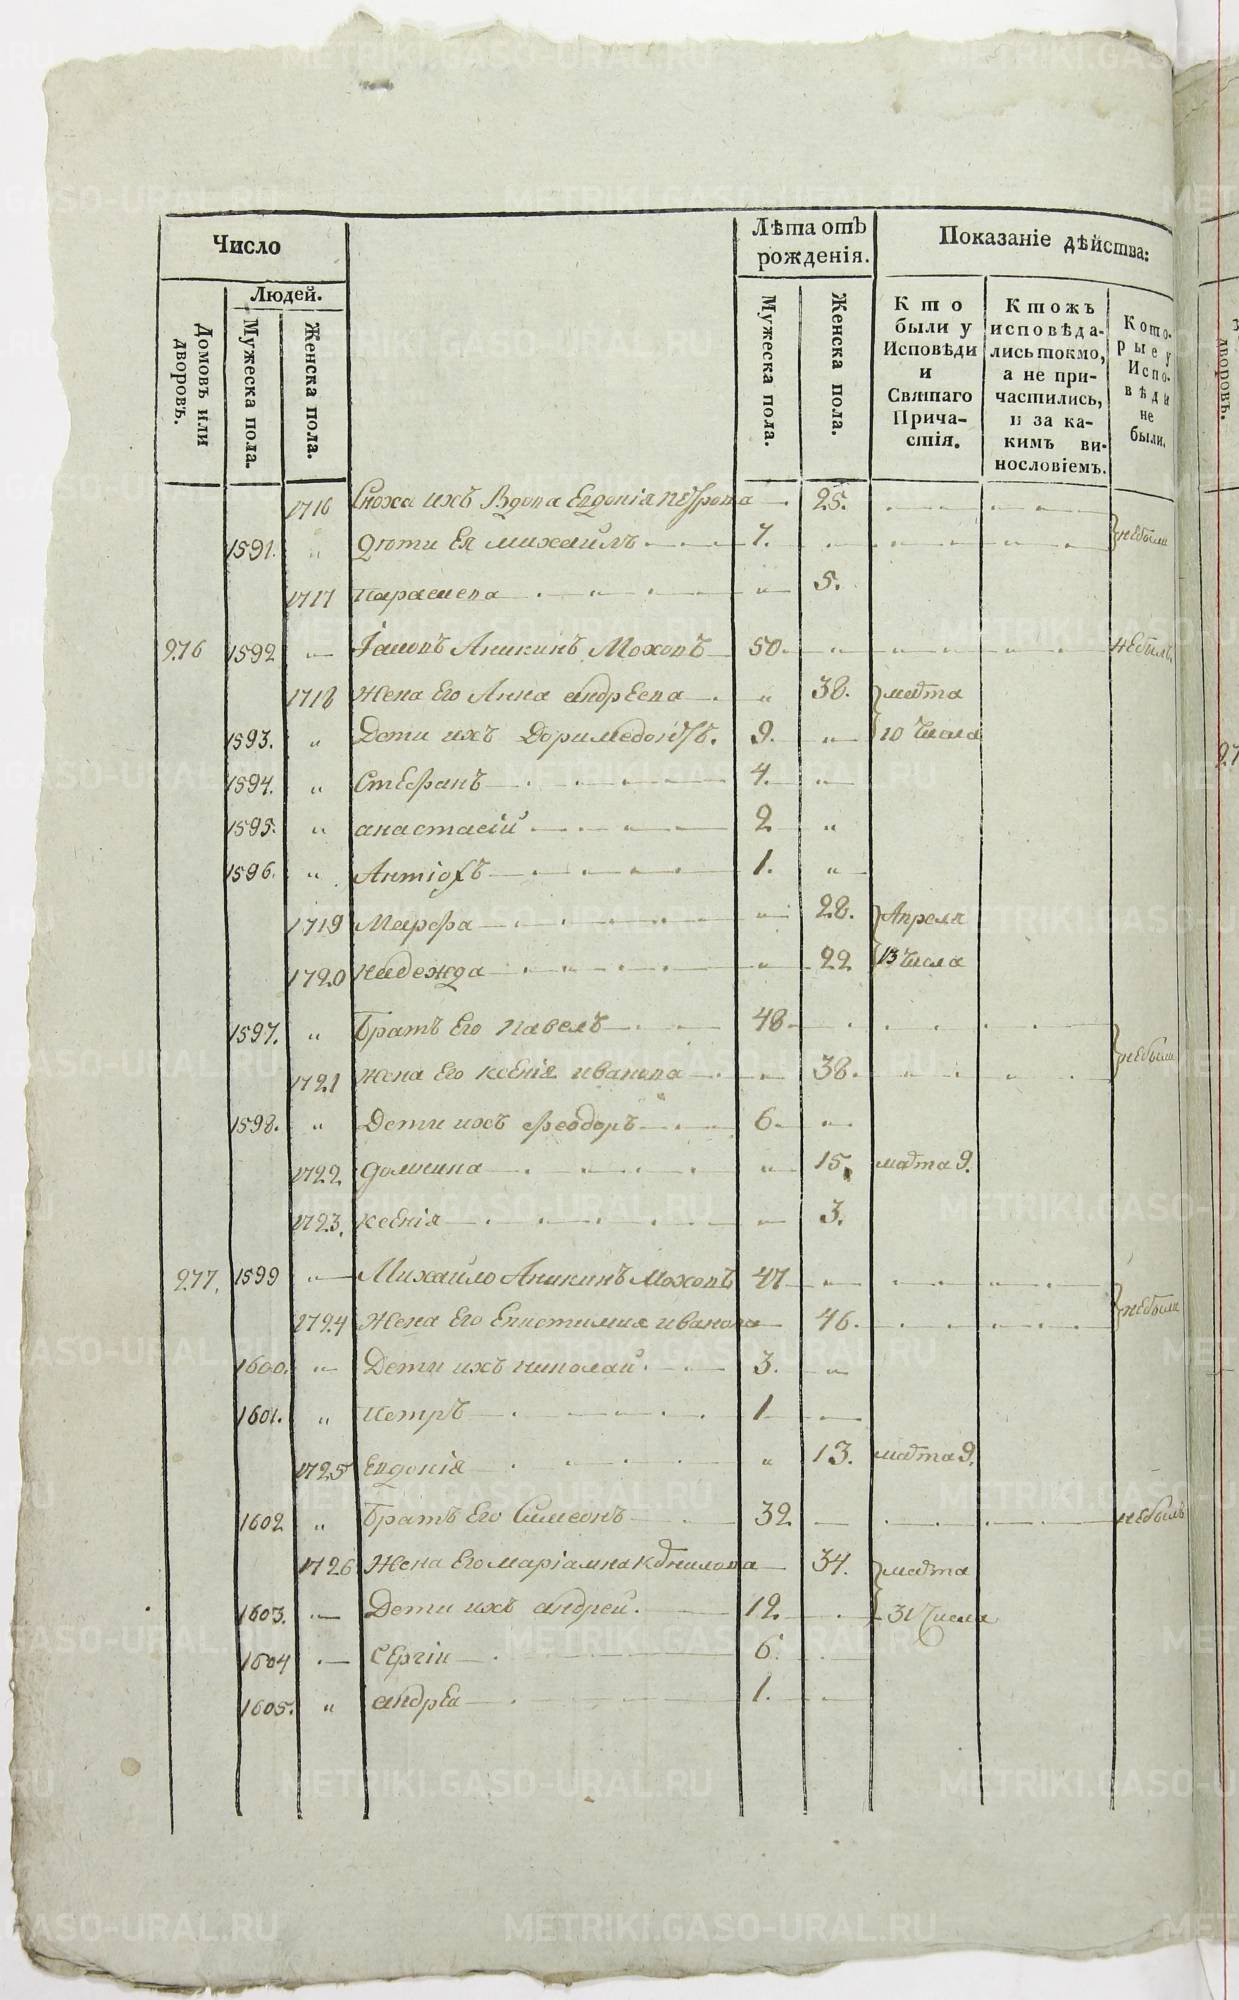 Число
Лѣта отъ рожденія.
Показаніе дѣйства:
Домовъ или дворовъ.
Людей.
Мужеска пола.
Женска пола.
Мужеска пола.
Женска пола.
Кто были у Исповѣди и Святаго Причастія.
Ктожъ исповѣдались токмо, а не причастились, и за какимъ винословіемъ.
Которые у Исповѣди не были.
1716 Сноха ихъ Вдова Евдокія петрова 25. небыли
1591. " дѣти Ея михаилъ 7.
1717 параскева " 5.
276 1592 Іаковъ Аникинъ Моховъ 50. " небылъ
1718 жена Его Анна андреева " 38. марта
1593. " Дети ихъ Доримедонтъ. 9. " 10 числа
1594. " Стефанъ 4. "
1595. " анастасій 2 "
1596. " Антіохъ 1. "
1719 Марфа " 28. Апреля
1720 надежда " 22 13 числа
1597. " Братъ Его павелъ 48 небыли
1721 жена Его ксенія иванова " 38.
1598. " Дети ихъ феодоръ 6. "
1722 домнина " 15. марта 9.
1723. ксенія " 3.
277. 1599 Михаило Аникинъ Моховъ 47 " небыли
1724 жена Его Епистимия иванова 46.
1600. " Дети ихъ николай 3. "
1601. " петръ 1
1725 Евдокія " 13. марта 9.
1602 " Братъ Его Симеонъ 32 небылъ
1726 Жена Его маріамна корнилова 34. марта
1603. Дети ихъ андрей. 12. 31 числа
1604 Сергіи 6.
1605. " андрѣа 1.
METRIKI.GASO-URAL.RU